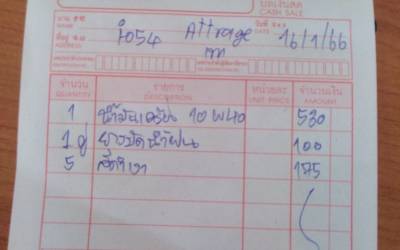 บิลเงินสด
CASH SALE
นาม
ที่อยู่
ADDRESS
Attrage
วันที่
DATE 16/1/66
จำนวน QUANTITY รายการ DESCRIPTION หน่วยละ UNIT PRICE จำนวนเงิน AMOUNT
1 น้ำมันเครื่อง 10W40 530
1 คู่ ยางปัดน้ำฝน 100
5 175